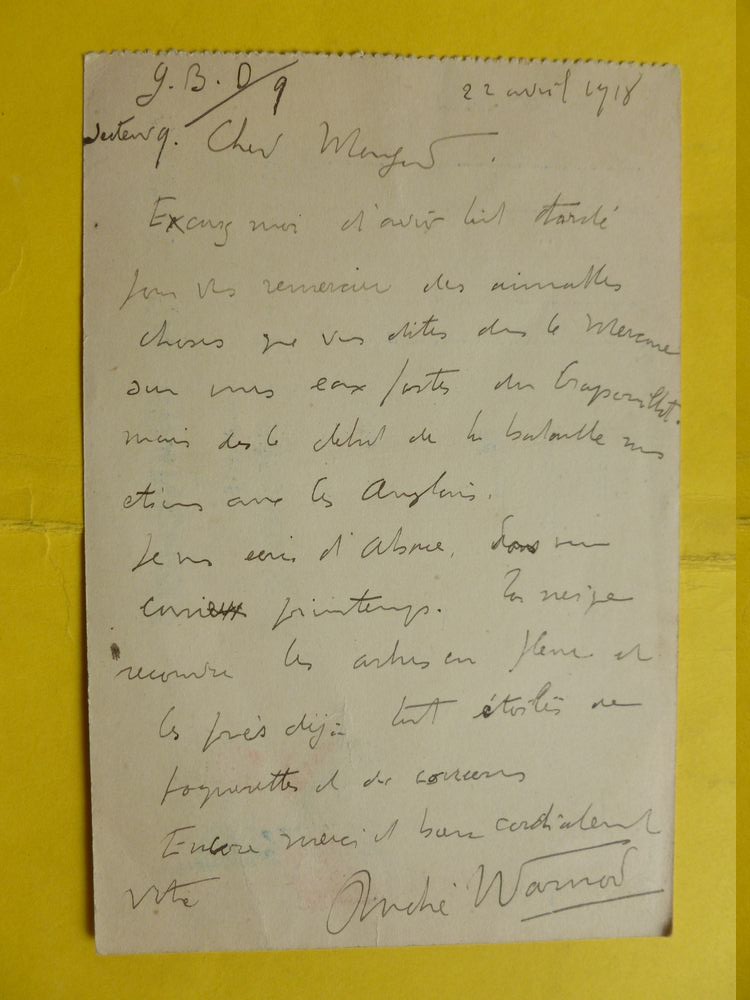 G.B.D/9
22 avril 1918
Secteur 9. Cher
Excusez moi d'avoir tant tardé
pour vous remercier des aimables
choses que vous dites dans le Mercure
sur mes eaux fortes du Crapouillot.
mais dès le début de la bataille nous
étions avec les Anglais.
Je vous écris d'Alsace, dans un
curieux printemps. La neige
recouvre les arbres en fleurs et
les près déjà tout étoilés de
paquerettes et de coucous
Encore merci et bien cordialement
Vôtre André Warnod